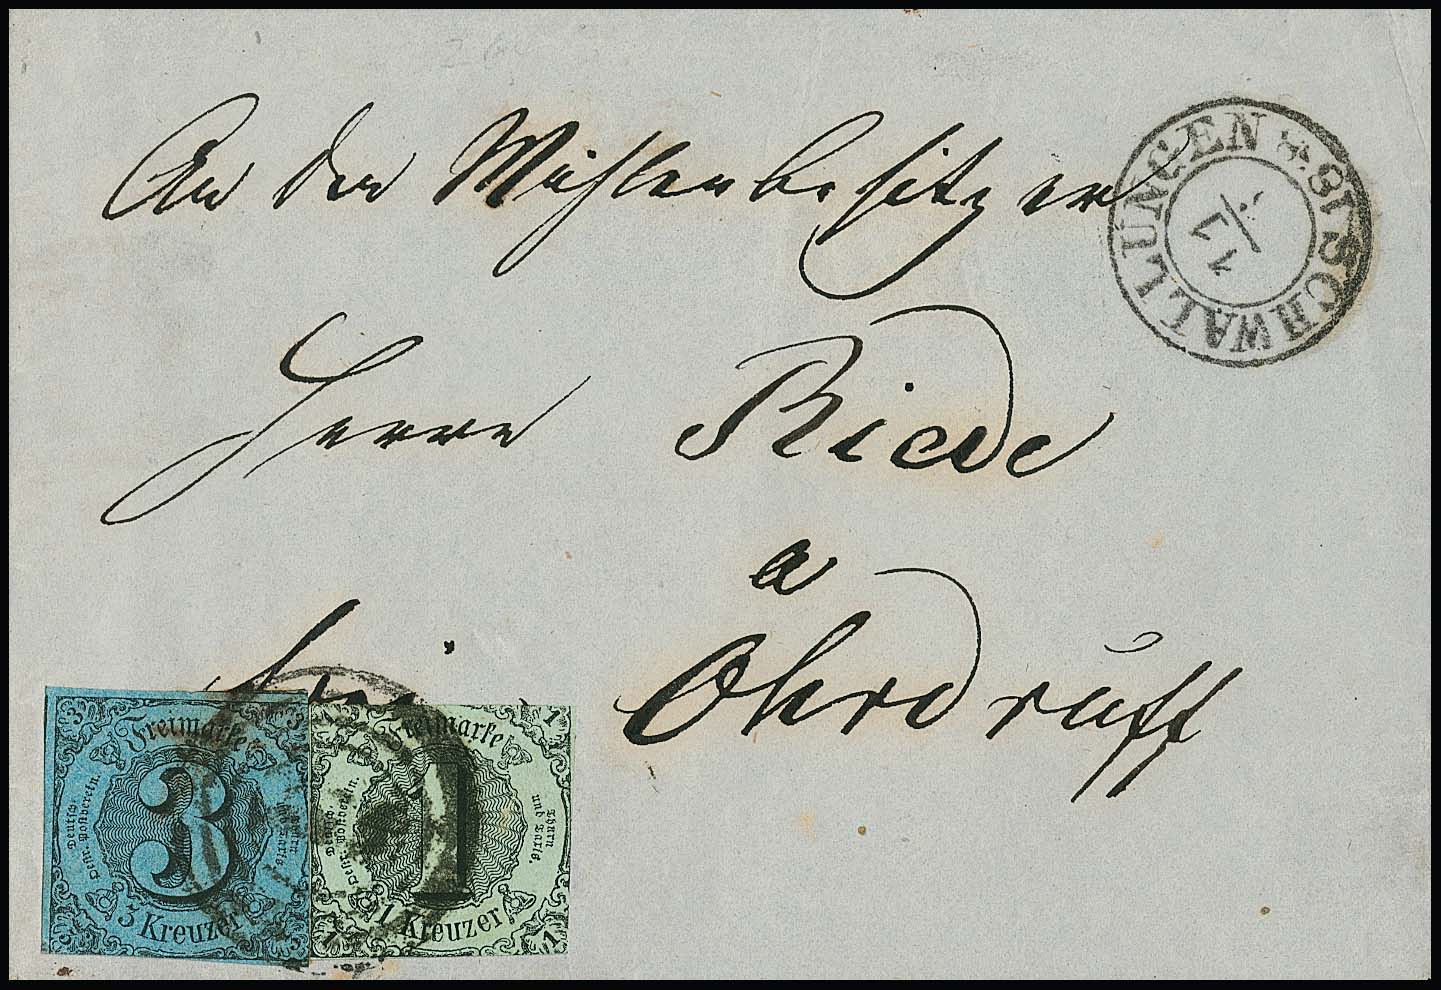 An den Mühlenbesitzer
Herrn Riede
a
frei. Ohrdruff
SCHWALLUNGEN
11
Freimarke
Deutsch-
Oestr. Postverein.
3
Thurn
und Taxis.
3 Kreuzer
Freimarke
Deutsch-
Oestr. Postverein.
1
Thurn
und Taxis.
1 Kreuzer